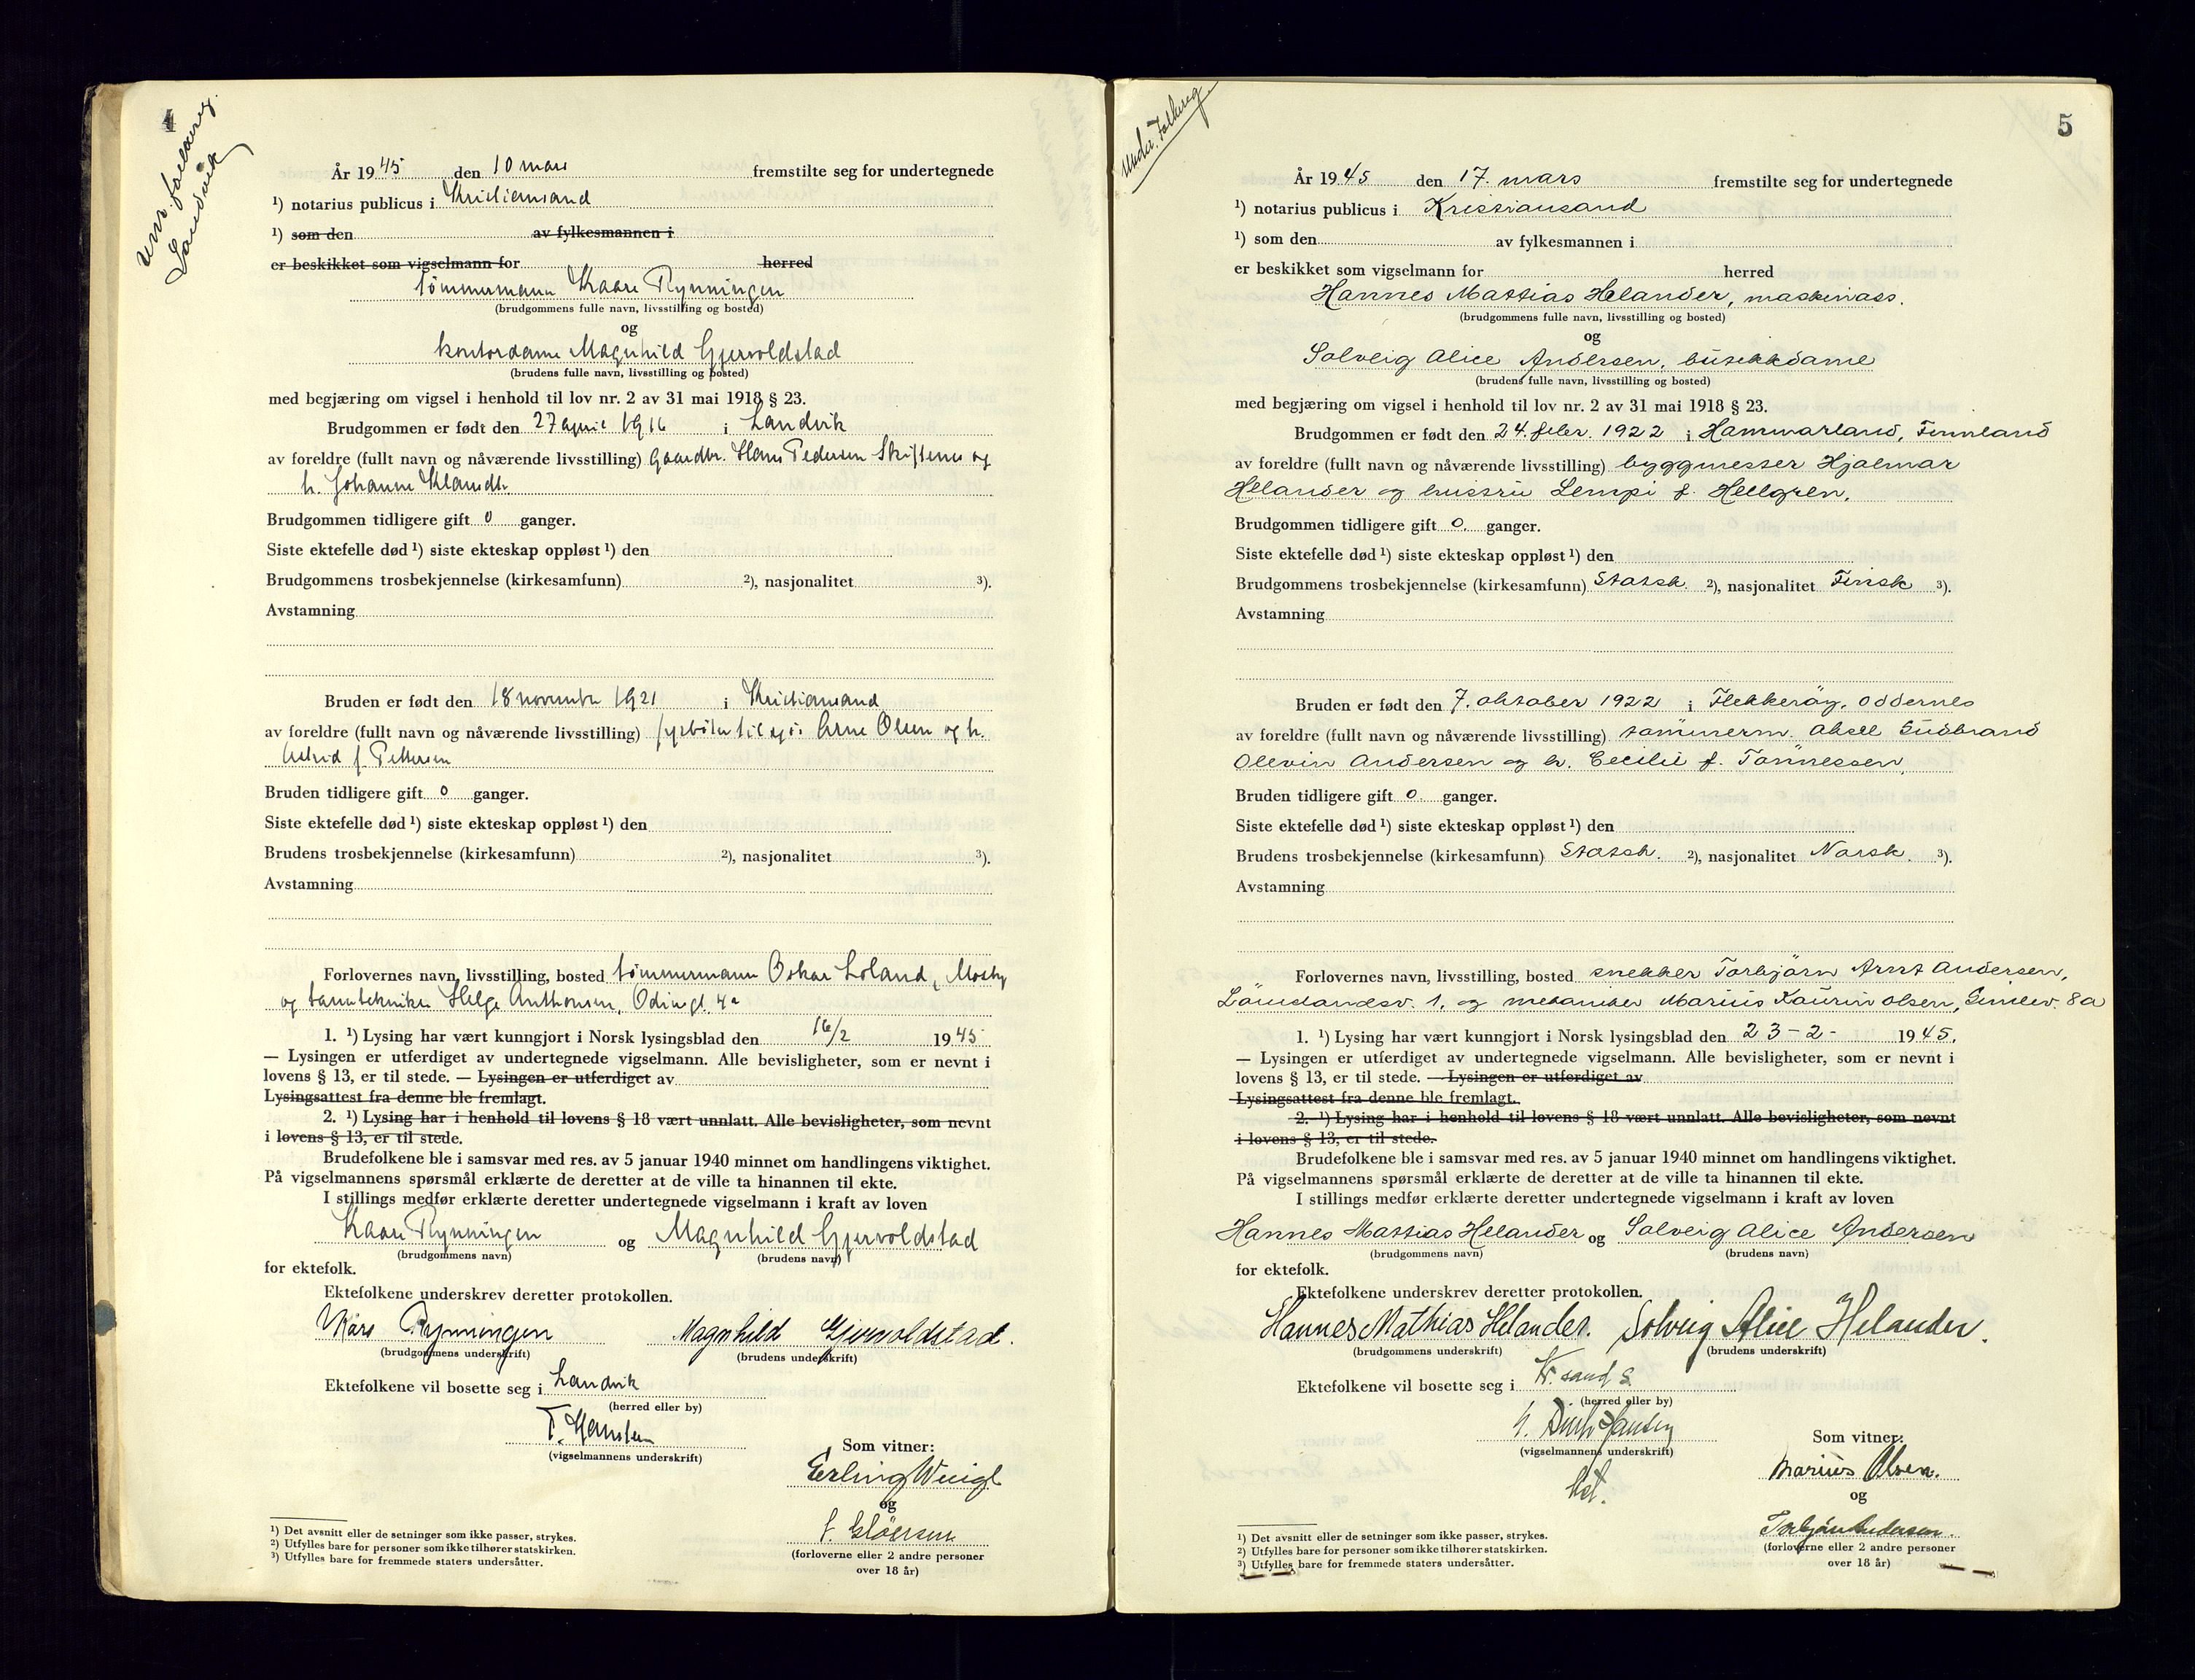 4
Landvik
År 1945 den 10 mars fremstilte seg for undertegnede
¹) notarius publicus i Kristiansand
¹) som den av fylkesmannen i
er beskikket som vigselmann for herred
tömmermann Kaare Rynningen
(brudgommens fulle navn, livsstilling og bosted)
og
kontordame Magnhild Gjervoldstad
(brudens fulle navn, livsstilling og bosted)
med begjæring om vigsel i henhold til lov nr. 2 av 31 mai 1918 § 23.
Brudgommen er født den 27 april 1916 i Landvik
av foreldre (fullt navn og nåværende livsstilling) Gaardbr. Hans Pedersen og
h. Johanne
Brudgommen tidligere gift 0 ganger.
Siste ektefelle død ¹) siste ekteskap oppløst ¹) den
Brudgommens trosbekjennelse (kirkesamfunn) ²), nasjonalitet ³).
Avstamning
Bruden er født den 18 november 1921 i Kristiansand
av foreldre (fullt navn og nåværende livsstilling) fyrböter til sjös Arne Olsen og h.
Astrid f. Pettersen
Bruden tidligere gift 0 ganger.
Siste ektefelle død ¹) siste ekteskap oppløst ¹) den
Brudens trosbekjennelse (kirkesamfunn) ²), nasjonalitet ³).
Avstamning
Forlovernes navn, livsstilling, bosted tömmermann Oskar Loland, Mosby
og tanntekniker Helge Anthonsen, Odinsgt. 4a
1. ¹) Lysing har vært kunngjort i Norsk lysingsblad den 16/2 1945
— Lysingen er utferdiget av undertegnede vigselmann. Alle bevisligheter, som er nevnt i
lovens § 13, er til stede. — Lysingen er utferdiget av
Lysingsattest fra denne ble fremlagt.
2. ¹) Lysing har i henhold til lovens § 18 vært unnlatt. Alle bevisligheter, som nevnt
i lovens § 13, er til stede.
Brudefolkene ble i samsvar med res. av 5 januar 1940 minnet om handlingens viktighet.
På vigselmannens spørsmål erklærte de deretter at de ville ta hinannen til ekte.
I stillings medfør erklærte deretter undertegnede vigselmann i kraft av loven
Kaare Rynningen og Magnhild Gjervoldstad
(brudgommens navn) (brudens navn)
for ektefolk.
Ektefolkene underskrev deretter protokollen.
Kåre Rynningen Magnhild Gjervoldstad.
(brudgommens underskrift) (brudens underskrift)
Ektefolkene vil bosette seg i Landvik
(herred eller by)
(vigselmannens underskrift)
Som vitner:
Erling
og
(forloverne eller 2 andre personer
over 18 år)
¹) Det avsnitt eller de setninger som ikke passer, strykes.
²) Utfylles bare for personer som ikke tilhører statskirken.
³) Utfylles bare for fremmede staters undersåtter.
5
År 1945 den 17. mars fremstilte seg for undertegnede
¹) notarius publicus i Kristiansand
¹) som den av fylkesmannen i
er beskikket som vigselmann for herred
Hannes Mattias Helander, maskinass.
(brudgommens fulle navn, livsstilling og bosted)
og
Solveig Alice Andersen, butikkdame
(brudens fulle navn, livsstilling og bosted)
med begjæring om vigsel i henhold til lov nr. 2 av 31 mai 1918 § 23.
Brudgommen er født den 24. febr. 1922 i Hammarland, Finnland
av foreldre (fullt navn og nåværende livsstilling) byggmester Hjalmar
Helander og hustru Lempi f. Hellgren.
Brudgommen tidligere gift 0. ganger.
Siste ektefelle død ¹) siste ekteskap oppløst ¹) den
Brudgommens trosbekjennelse (kirkesamfunn) Statsk. ²), nasjonalitet Finsk ³).
Avstamning
Bruden er født den 7. oktober 1922 i Flekkeröy, Oddernes
av foreldre (fullt navn og nåværende livsstilling) tömmerm. Aksel Gudbrand
Olevin Andersen og h. Cecilie f. Tönnessen.
Bruden tidligere gift 0. ganger.
Siste ektefelle død ¹) siste ekteskap oppløst ¹) den
Brudens trosbekjennelse (kirkesamfunn) Statsk. ²), nasjonalitet Norsk. ³).
Avstamning
Forlovernes navn, livsstilling, bosted snekker Torbjörn Arnt Andersen,
1, og mekaniker Marius Kaurin Olsen, Gimlev. 8a
1. ¹) Lysing har vært kunngjort i Norsk lysingsblad den 23-2- 1945.
— Lysingen er utferdiget av undertegnede vigselmann. Alle bevisligheter, som er nevnt i
lovens § 13, er til stede. — Lysingen er utferdiget av
Lysingsattest fra denne ble fremlagt.
2. ¹) Lysing har i henhold til lovens § 18 vært unnlatt. Alle bevisligheter, som nevnt
i lovens § 13, er til stede.
Brudefolkene ble i samsvar med res. av 5 januar 1940 minnet om handlingens viktighet.
På vigselmannens spørsmål erklærte de deretter at de ville ta hinannen til ekte.
I stillings medfør erklærte deretter undertegnede vigselmann i kraft av loven
Hannes Mattias Helander og Solveig Alice Andersen
(brudgommens navn) (brudens navn)
for ektefolk.
Ektefolkene underskrev deretter protokollen.
Hannes Mathias Helander. Solveig Alice Helander.
(brudgommens underskrift) (brudens underskrift)
Ektefolkene vil bosette seg i Kr.sand S.
(herred eller by)
(vigselmannens underskrift)
Som vitner:
Marius Olsen.
og
Torbjörn Andersen.
(forloverne eller 2 andre personer
over 18 år)
¹) Det avsnitt eller de setninger som ikke passer, strykes.
²) Utfylles bare for personer som ikke tilhører statskirken.
³) Utfylles bare for fremmede staters undersåtter.